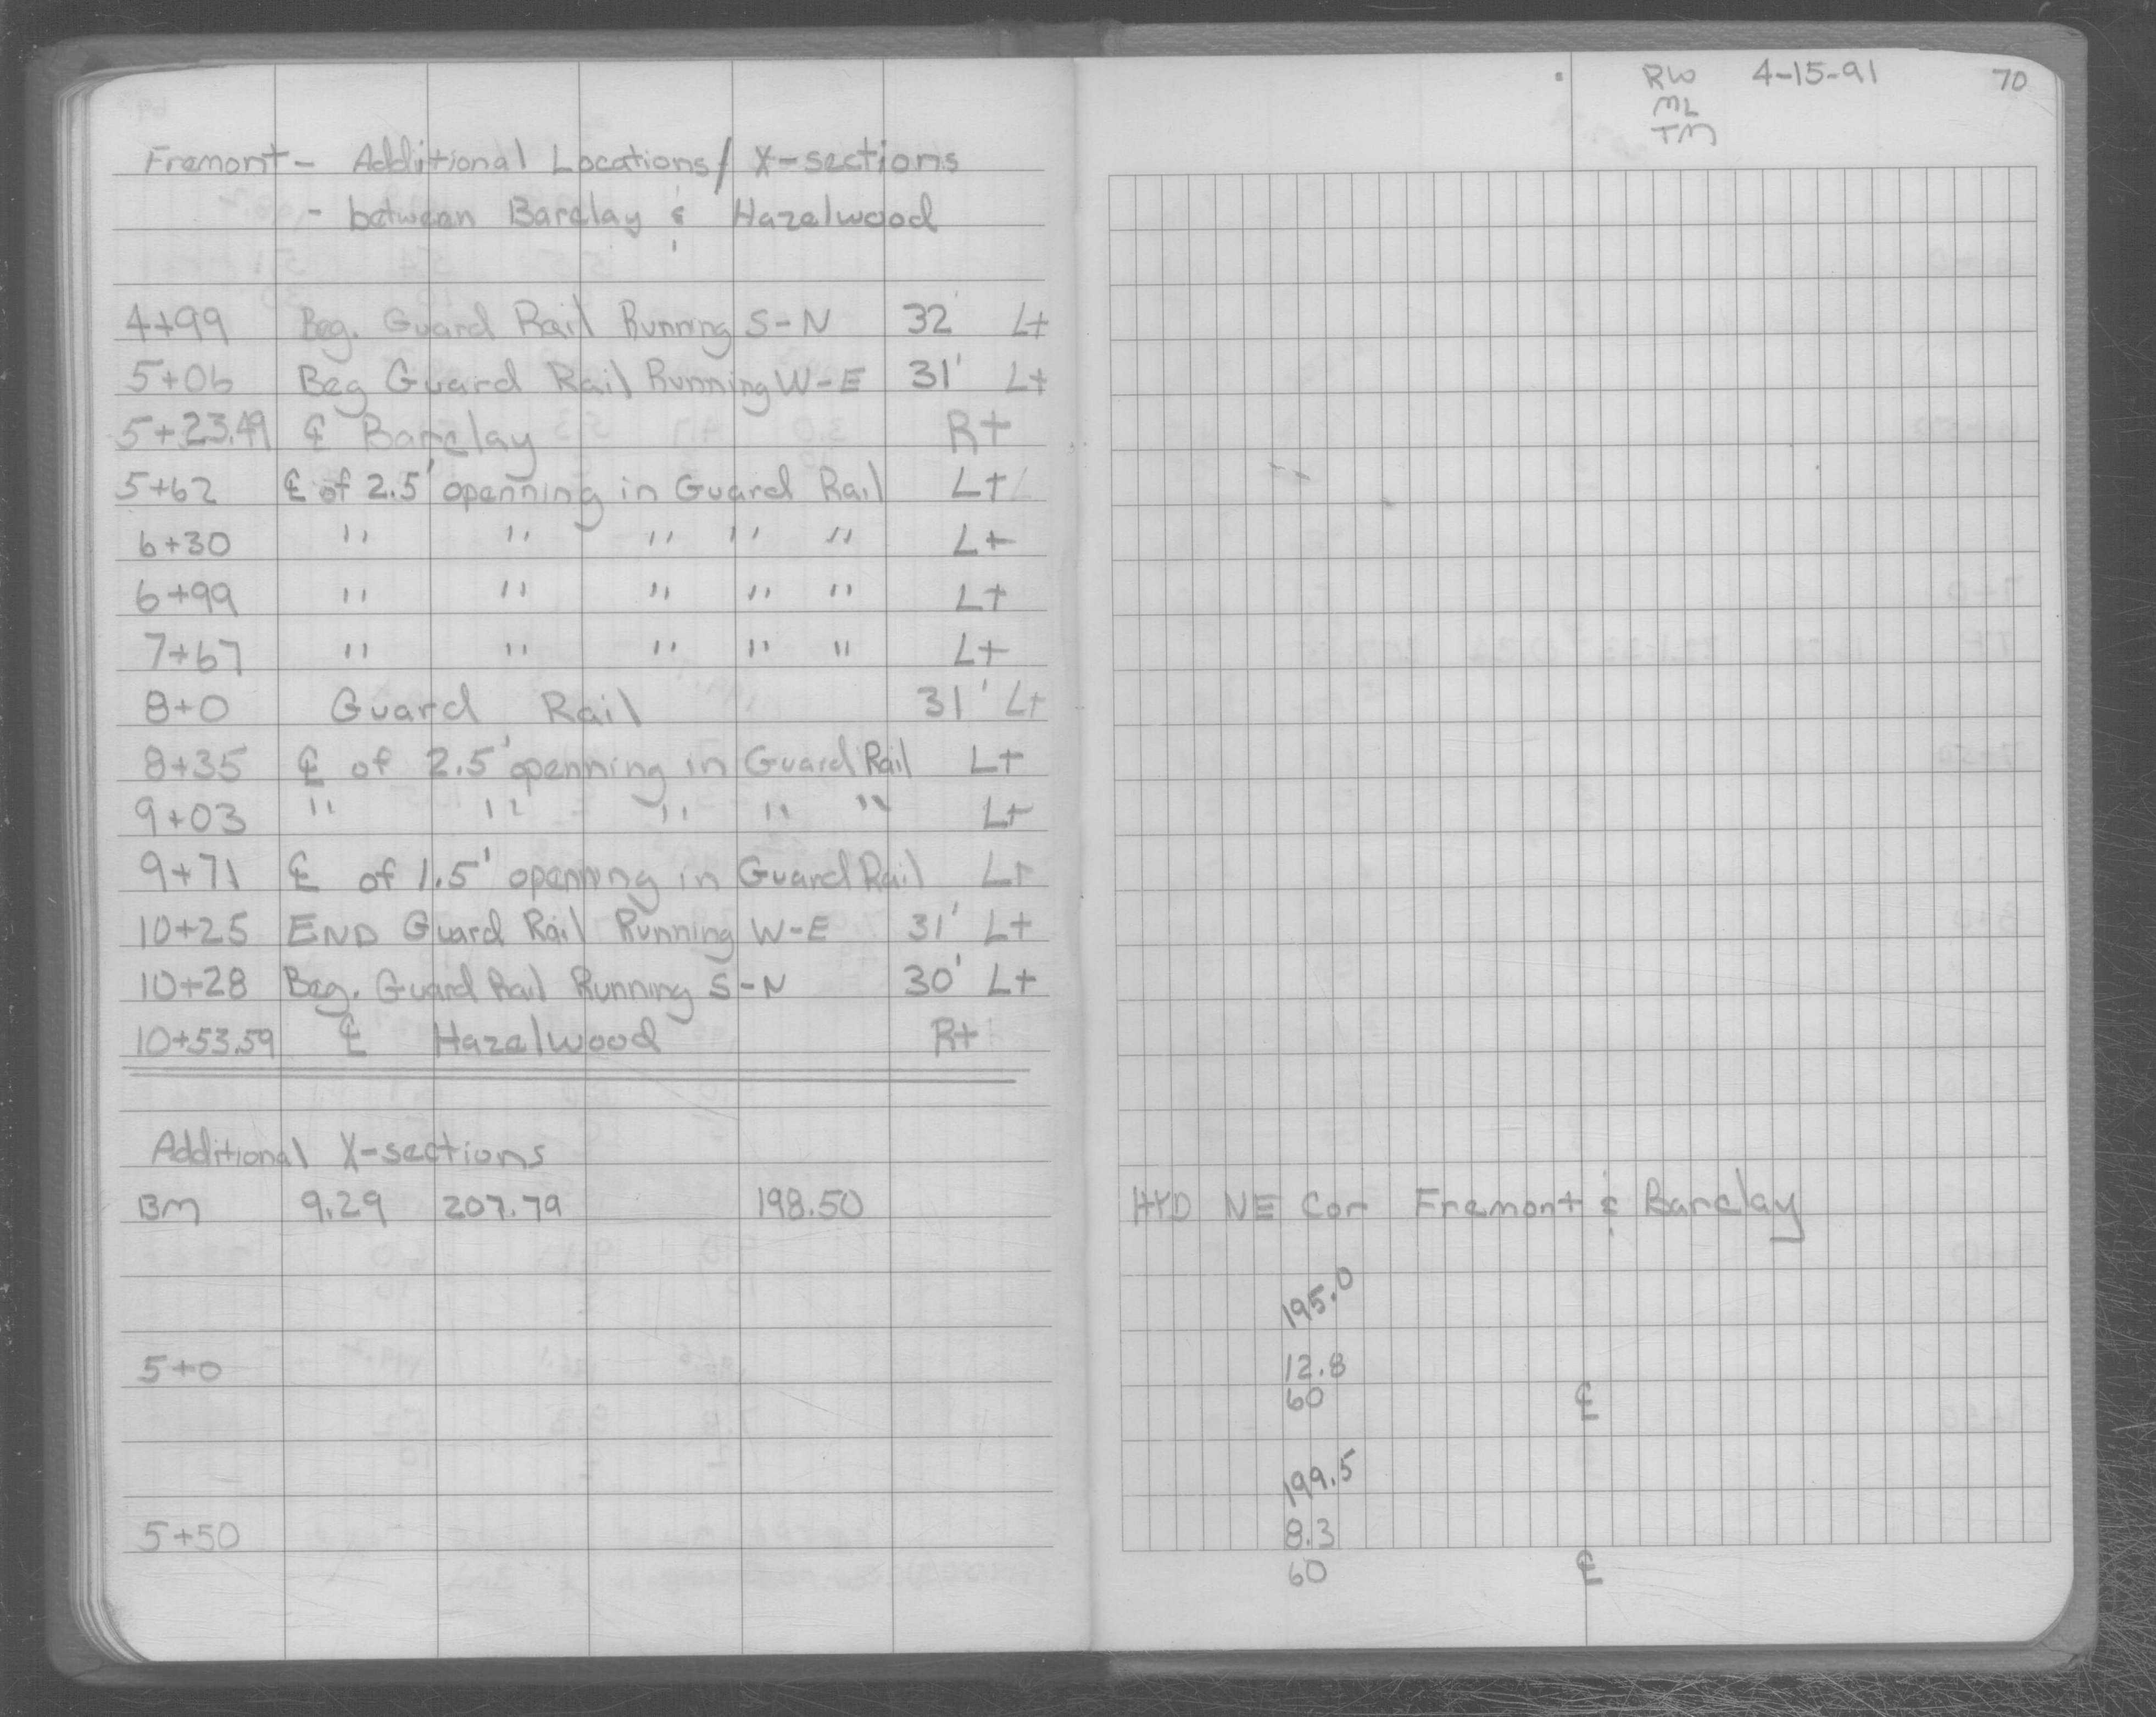 Fremont - Additional Locations / X-sections
- between Barclay & Hazelwood
4+99 Beg. Guard Rail Running S-N 32' Lt
5+06 Beg Guard Rail Running W-E 31' Lt
5+23.49 ℄ Barclay Rt
5+62 ℄ of 2.5' openning in Guard Rail Lt
6+30 " " " " " Lt
6+99 " " " " " Lt
7+67 " " " " " Lt
8+0 Guard Rail 31' Lt
8+35 ℄ of 2.5' openning in Guard Rail Lt
9+03 " " " " " Lt
9+71 ℄ of 1.5' openning in Guard Rail Lt
10+25 END Guard Rail Running W-E 31' Lt
10+28 Beg. Guard Rail Running S-N 30' Lt
10+53.59 ℄ Hazelwood Rt
Additional X-sections
BM 9.29 207.79 198.50
5+0
5+50
RW 4-15-91 70
ML
TM
HYD NE Cor Fremont & Barclay
195.0
12.8
60 ℄
199.5
8.3
60 ℄